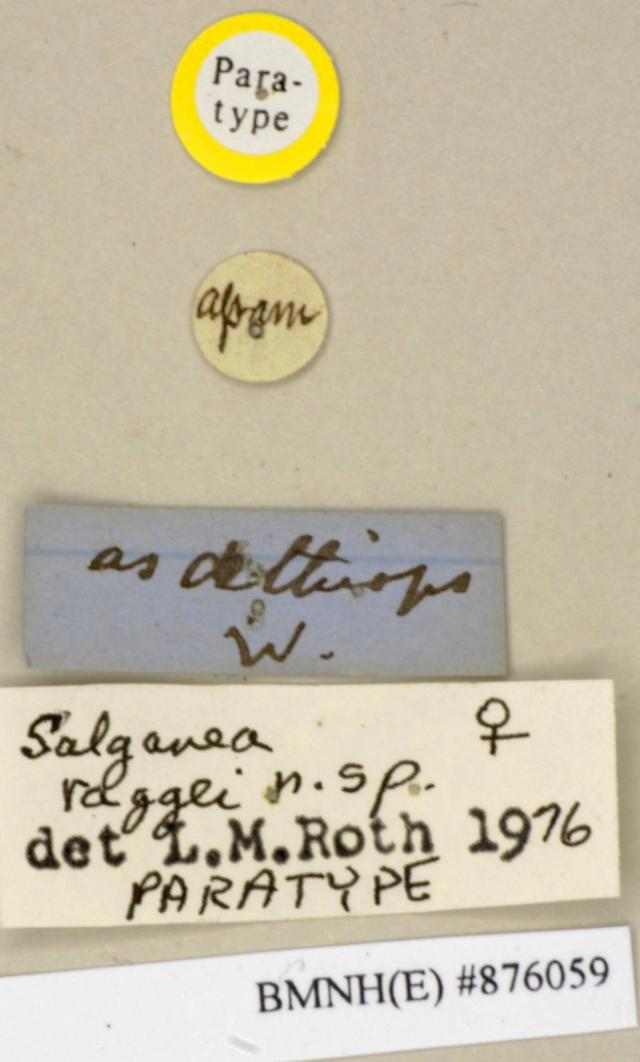 Para-
type
assam
as aethiops
W.
Salganea ♀
raggei n. sp.
det L.M.Roth 1976
PARATYPE
BMNH(E) #876059